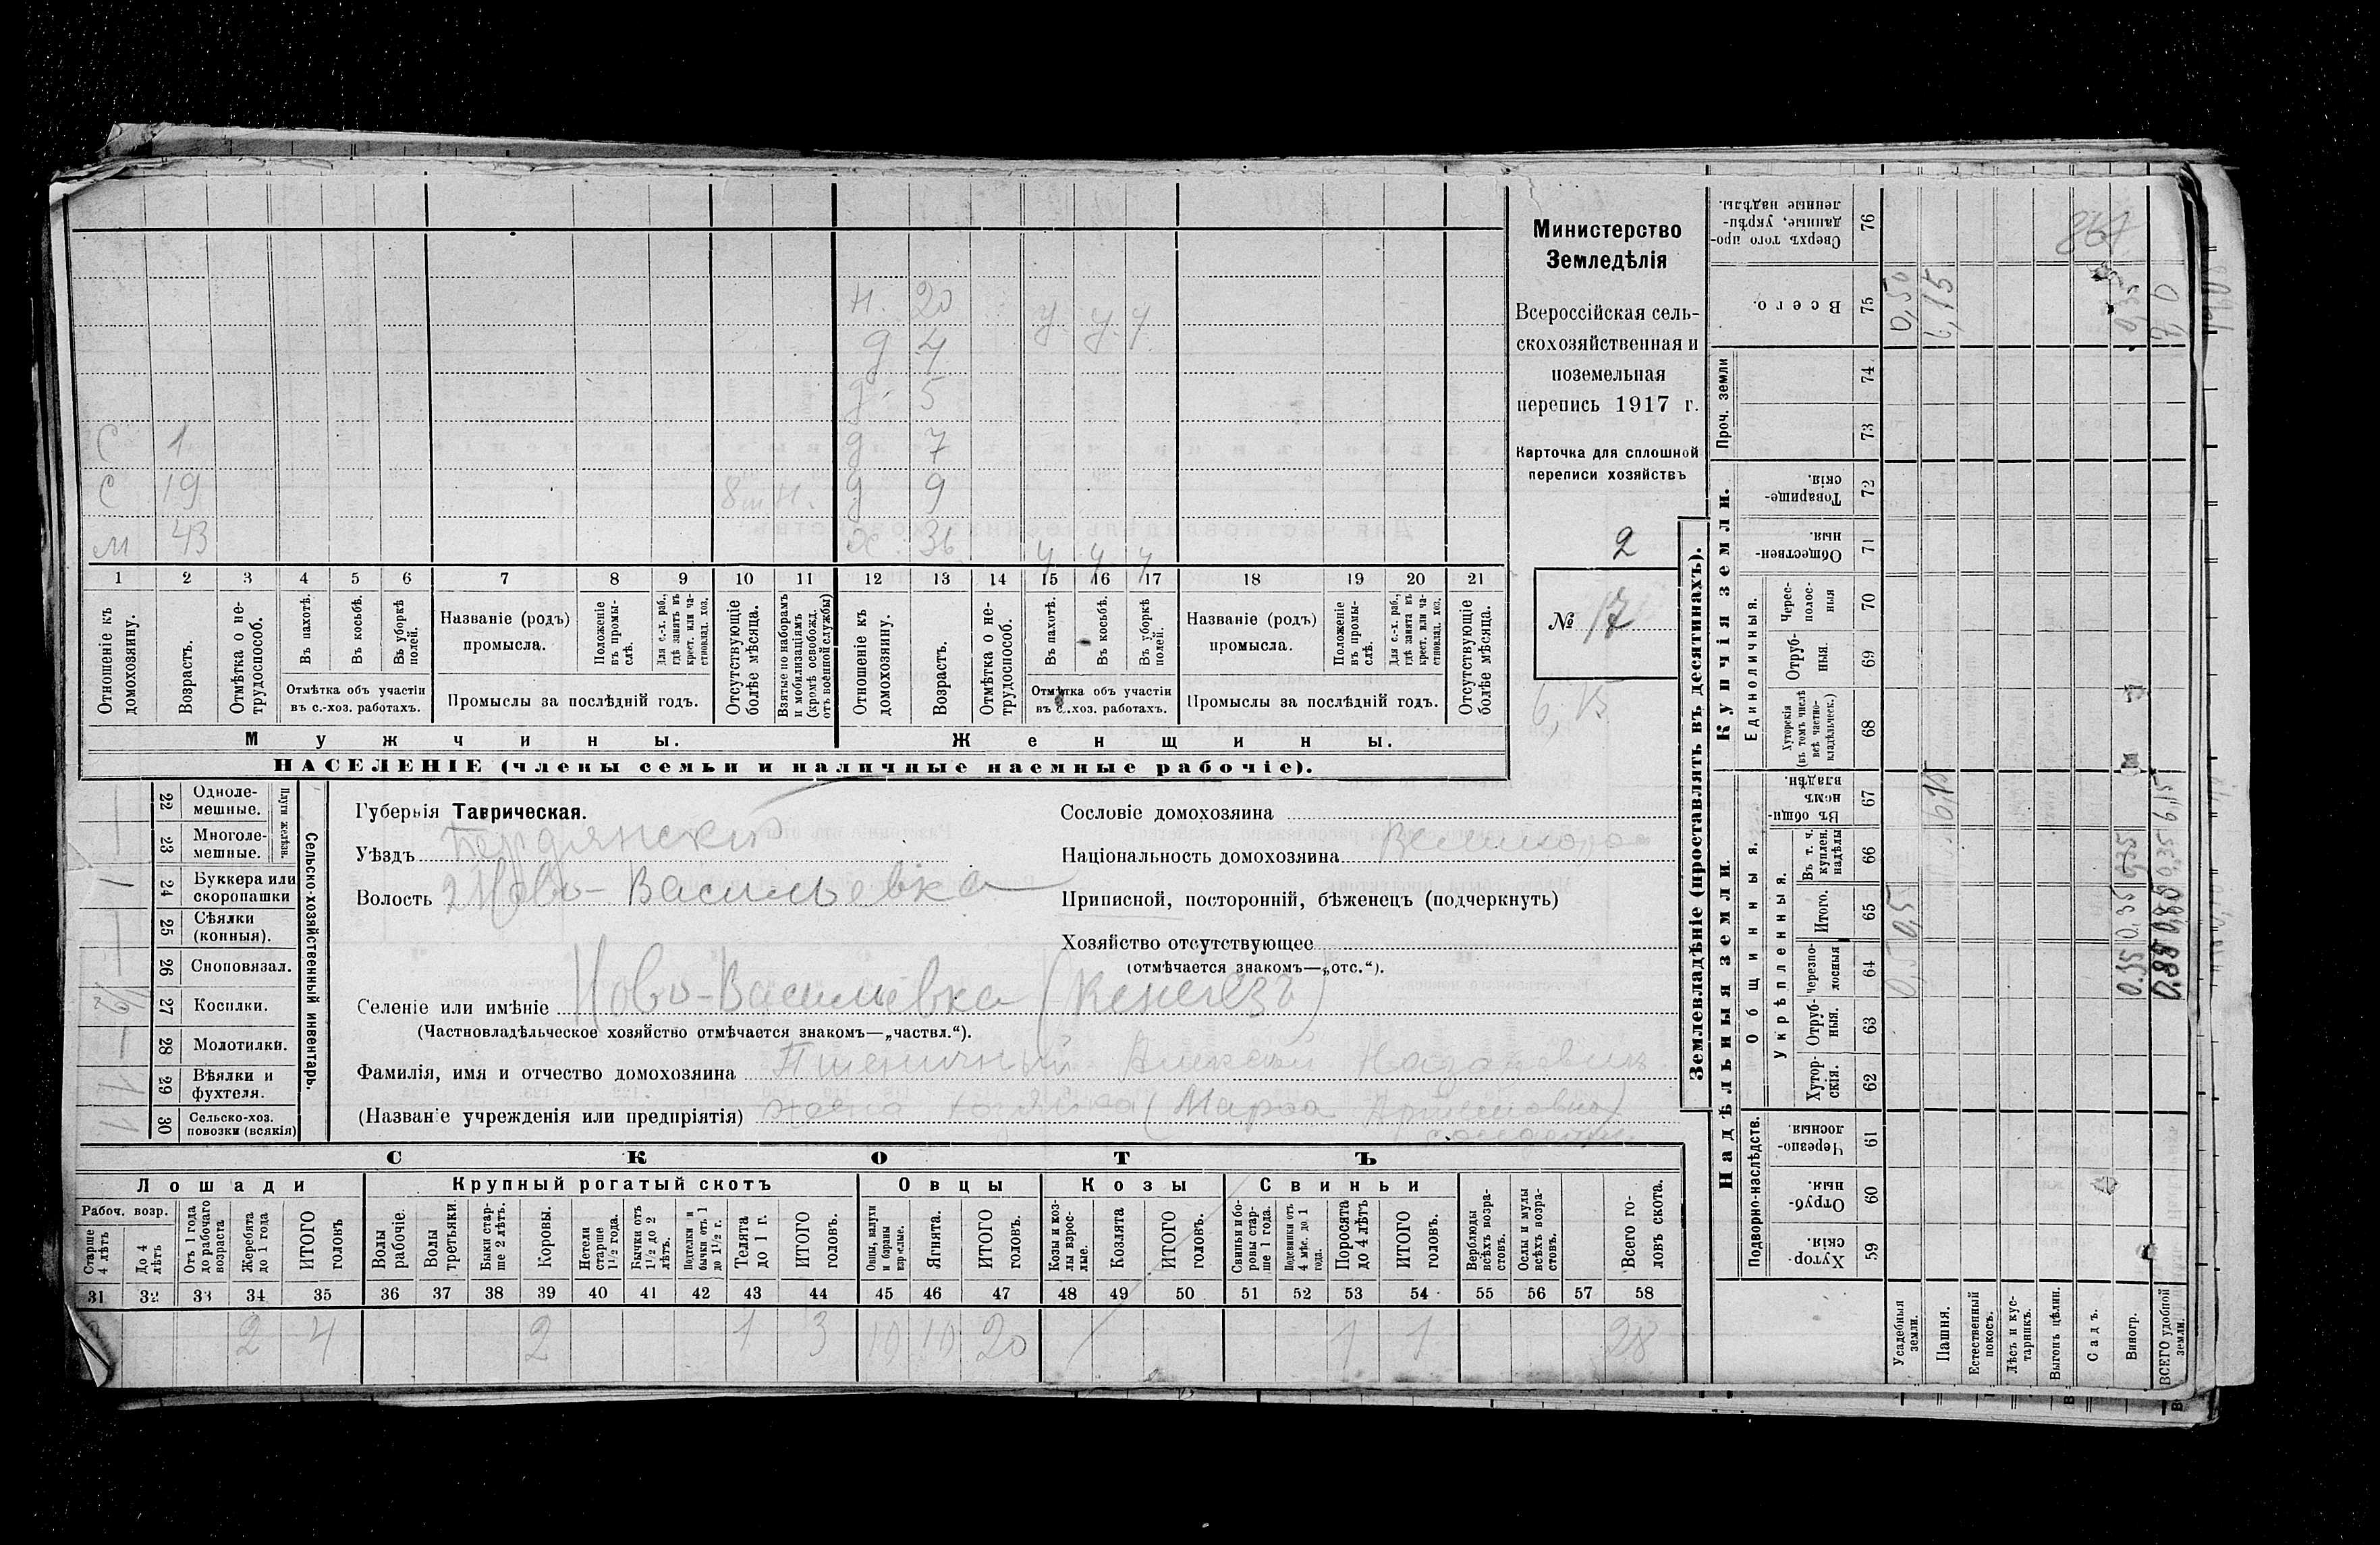 С 1
С 19 8 м Н.
м 43
Н. 20 у у у
д 4
д. 5
д 7
д 9
ж. 36 у у у
1 2 3 4 5 6 7 8 9 10 11 12 13 14 15 16 17 18 19 20 21
Отношеніе къ домохозяину.
Возрастъ.
Отмѣтка о не-трудоспособ.
Въ пахотѣ.
Въ косьбѣ.
Въ уборкѣ полей.
Отмѣтка объ участіи въ с.-хоз. работахъ.
Названіе (родъ) промысла.
Положеніе въ промы-слѣ.
Для с.-х. раб., гдѣ занятъ въ крест. или ча-стновлад. хоз.
Промыслы за послѣдній годъ.
Отсутствующіе болѣе мѣсяца.
Взятые по наборамъ и мобилизаціямъ (кромѣ освобожд. отъ военной службы)
Отношеніе къ домохозяину.
Возрастъ.
Отмѣтка о не-трудоспособ.
Въ пахотѣ.
Въ косьбѣ.
Въ уборкѣ полей.
Отмѣтка объ участіи въ с.-хоз. работахъ.
Названіе (родъ) промысла.
Положеніе въ промы-слѣ.
Для с.-х. раб., гдѣ занята въ крест. или ча-стновлад. хоз.
Промыслы за послѣдній годъ.
Отсутствующіе болѣе мѣсяца.
Мужчины. Женщины.
НАСЕЛЕНІЕ (члены семьи и наличные наемные рабочіе).
Министерство
Земледѣлія
Всероссійская сель-
скохозяйственная и
поземельная
перепись 1917 г.
Карточка для сплошной
переписи хозяйствъ
2
№ 17
6,15
22 Одноле-мешные.
23 Многоле-мешные.
Плуги желѣзн.
24 Буккера или скоропашки 1
25 Сѣялки (конныя).
26 Сноповязал.
27 Косилки.
28 Молотилки.
29 Вѣялки и фухтеля. 1
30 Сельско-хоз. повозки (всякія) 1
Сельско-хозяйственный инвентарь.
Губернія Таврическая.
Уѣздъ Бердянский
Волость 2 Ново-Васильевка
Селеніе или имѣніе Ново-Васильевка (Кенегезъ)
(Частновладѣльческое хозяйство отмѣчается знакомъ—„частвл.“).
Фамилія, имя и отчество домохозяина Пшеничный Алексей Назарович
(Названіе учрежденія или предпріятія) (Марфа
Сословіе домохозяина
Національность домохозяина Великоро
Приписной, посторонній, бѣженецъ (подчеркнуть)
Хозяйство отсутствующее
(отмѣчается знакомъ—„отс.“).
СКОТЪ
Лошади Крупный рогатый скотъ Овцы Козы Свиньи
Рабоч. возр.
Старше 4 лѣтъ
До 4 лѣтъ
Отъ 1 года до рабочаго возраста
Жеребята до 1 года
ИТОГО головъ
Волы рабочіе.
Волы третьяки.
Быки стар-ше 2 лѣтъ.
Коровы.
Нетели старше 1½ года.
Бычки отъ 1½ до 2 лѣтъ.
Подтелки и бычки отъ 1 до 1½ г.
Телята до 1 г.
ИТОГО головъ.
Овцы, валухи и бараны взрослые.
Ягнята.
ИТОГО головъ.
Козы и коз-лы взрос-лые.
Козлята
ИТОГО головъ.
Свиньи и бо-ровы стар-ше 1 года.
Подсвинки отъ 4 мѣс. до 1 года.
Поросята до 4 лѣтъ
ИТОГО головъ.
Верблюды всѣхъ возра-стовъ.
Ослы и мулы всѣхъ возра-стовъ.
Всего го-ловъ скота.
31 32 33 34 35 36 37 38 39 40 41 42 43 44 45 46 47 48 49 50 51 52 53 54 55 56 57 58
2 4 2 1 3 10 10 20 1 1 28
Землевладѣніе (проставлять въ десятинахъ).
Надѣльныя земли. Купчія земли.
Проч. земли
Подворно-наслѣдств.
Общинныя.
Укрѣпленныя.
Единоличныя.
Хутор-скія. 59
Отруб-ныя. 60
Черезпо-лосныя. 61
Хутор-скія. 62
Отруб-ныя. 63
Черезпо-лосныя 64
Итого. 65
Въ т. ч. куплен. надѣлы 66
Въ общи-номъ владѣн. 67
Хуторскія (въ томъ числѣ всѣ частно-владѣльческ.) 68
Отруб-ныя. 69
Черес-полос-ныя 70
Обществен-ныя. 71
Товарище-скія. 72
73
74
Всего. 75
Сверхъ того про-данные, укрѣп-ленные надѣлы. 76
Усадебныя земли. 0,5 0,5 0,50
Пашня. 6,15 6,15
Естественный покосъ.
Лѣсъ и кус-тарникъ.
Выгонъ цѣлин.
Садъ.
Виногр. 0.35 0,35 0,35 0,35
ВСЕГО удобной земли. 0.85 0,80 0,35 6,15 7,0
867